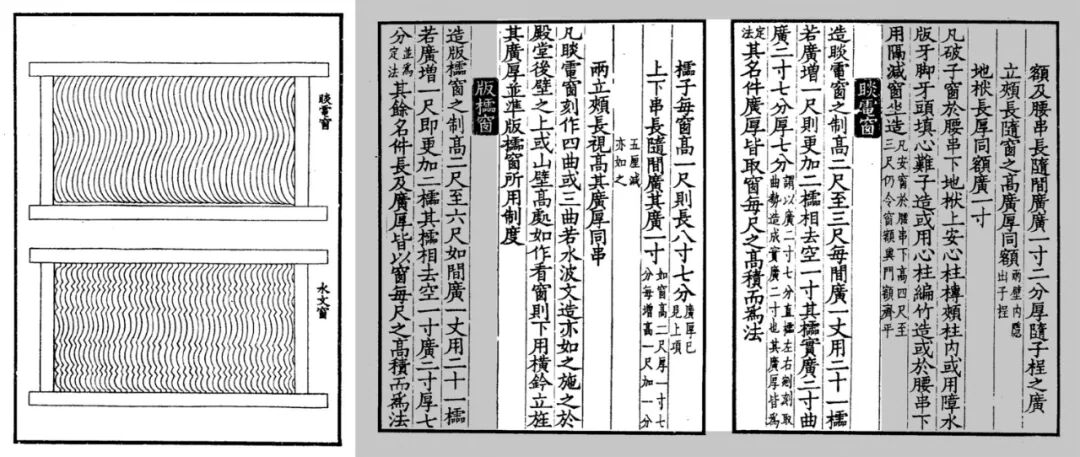 睒電窗
水文窗
額及腰串長隨間廣廣一寸二分厚隨子桯之廣
立頰長隨窗之高廣厚同額兩壁內隱出子桯
地栿長厚同額廣一寸
凡破子窗於腰串下地栿上安心柱槫頰柱內或用障水
版牙脚牙頭填心難子造或用心柱編竹造或於腰串下
用隔減窗坐造凡安窗於腰串下高四尺至三尺仍令窗額與門額齊平
睒電窗
造睒電窗之制高二尺至三尺每間廣一丈用二十一櫺
若廣增一尺則更加二櫺相去空一寸其櫺實廣二寸曲
廣二寸七分厚七分謂以廣二寸七分直櫺左右剜刻取曲勢造成實廣二寸也其廣厚皆為
定法其名件廣厚皆取窗每尺之高積而為法
櫺子每窗高一尺則長八寸七分廣厚已見上項
上下串長隨間廣其廣一寸如窗高二尺厚一寸七分每增高一尺加一分
五厘減亦如之
兩立頰長視高其廣厚同串
凡睒電窗刻作四曲或三曲若水波文造亦如之施之於
殿堂後壁之上或山壁高處如作看窗則下用橫鈐立旌
其廣厚並準版櫺窗所用制度
版櫺窗
造版櫺窗之制高二尺至六尺如間廣一丈用二十一櫺
若廣增一尺即更加二櫺其櫺相去空一寸廣二寸厚七
分並為定法其餘名件長及廣厚皆以窗每尺之高積而為法